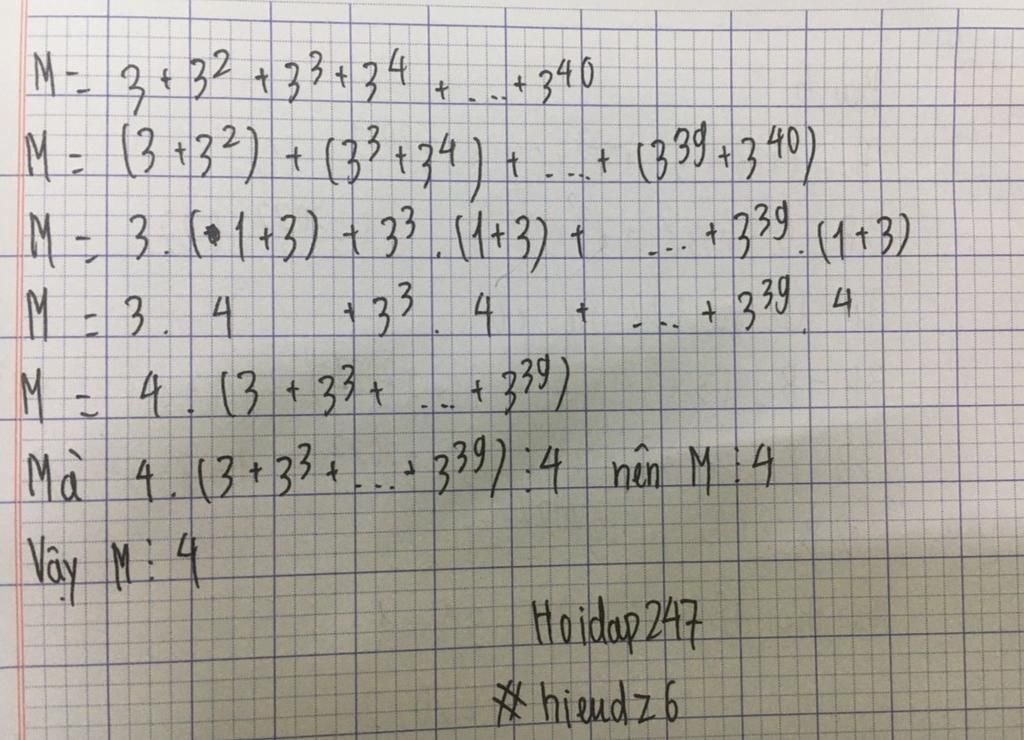 M = 3 + 3² + 3³ + 3⁴ + ... + 3⁴⁰
M = (3 + 3²) + (3³ + 3⁴) + ... + (3³⁹ + 3⁴⁰)
M = 3 . (1 + 3) + 3³ . (1 + 3) + ... + 3³⁹ . (1 + 3)
M = 3 . 4 + 3³ . 4 + ... + 3³⁹ . 4
M = 4 . (3 + 3³ + ... + 3³⁹)
Mà 4 . (3 + 3³ + ... + 3³⁹) ⋮ 4 nên M ⋮ 4
Vậy M ⋮ 4
Hoidap247
# hieudz6